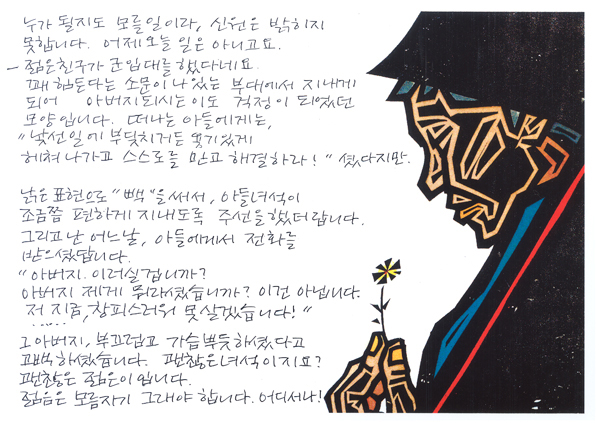 누가 될지도 모를 일이라, 신원은 밝히지
못합니다. 어제 오늘 일은 아니고요.
- 젊은 친구가 군입대를 했다네요.
꽤 힘든다는 소문이 나 있는 부대에서 지내게
되어 아버지 되시는 이도 걱정이 되었던
모양입니다. 떠나는 아들에게는,
"낯선 일에 부딪치거든 용기있게
헤쳐나가고 스스로를 믿고 해결하라!" 셨다지만.
낡은 표현으로 "빽"을 써서, 아들녀석이
조금쯤 편하게 지내도록 주선을 했더랍니다.
그리고 난 어느날, 아들에게서 전화를
받으셨답니다.
"아버지. 이러실 겁니까?
아버지 제게 뭐라셨습니까? 이건 아닙니다.
저 지금, 창피스러워 못 살겠습니다!"
......
그 아버지, 부끄럽고 가슴 뿌듯하셨다고
고백하셨습니다. 괜찮은 녀석이지요?
괜찮은 젊은이입니다.
젊음은 모름지기 그래야 합니다. 어디서나!